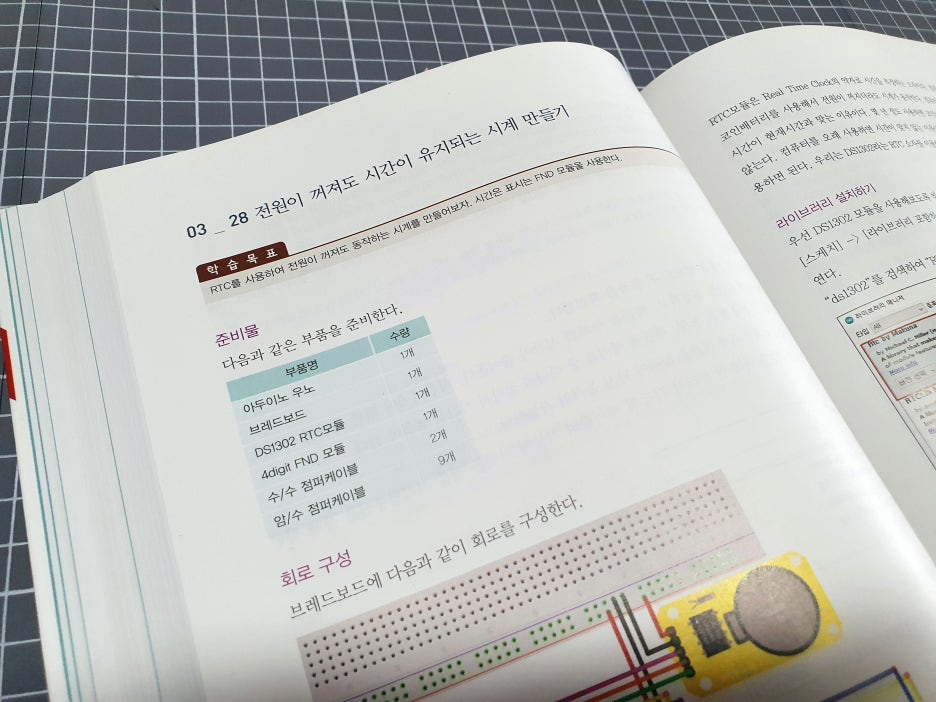 03 _ 28 전원이 꺼져도 시간이 유지되는 시계 만들기
학 습 목 표
RTC를 사용하여 전원이 꺼져도 동작하는 시계를 만들어보자. 시간은 표시는 FND 모듈을 사용한다.
준비물
다음과 같은 부품을 준비한다.
부품명 수량
아두이노 우노 1개
브레드보드 1개
DS1302 RTC모듈 1개
4digit FND 모듈 1개
수/수 점퍼케이블 2개
암/수 점퍼케이블 9개
회로 구성
브레드보드에 다음과 같이 회로를 구성한다.
RTC모듈은 Real Time Clock의 약자로 시간을
코인배터리를 사용해서 전원이
시간이 현재시간과 맞는 이유이다. 몇 년 정도 사용하면
않는다. 컴퓨터를 오래 사용하면 시간이 맞지 않는
용하면 된다. 우리는 DS1302라는 RTC
라이브러리 설치하기
우선 DS1302 모듈을 사용해보도록
[스케치] -> [라이브러리 포함하
연다.
"ds1302"를 검색하여
라이브러리 매니저
타입 All
Rtc by Makuna
by Michael C. Miller
A library that
of module
More info
버전 선택